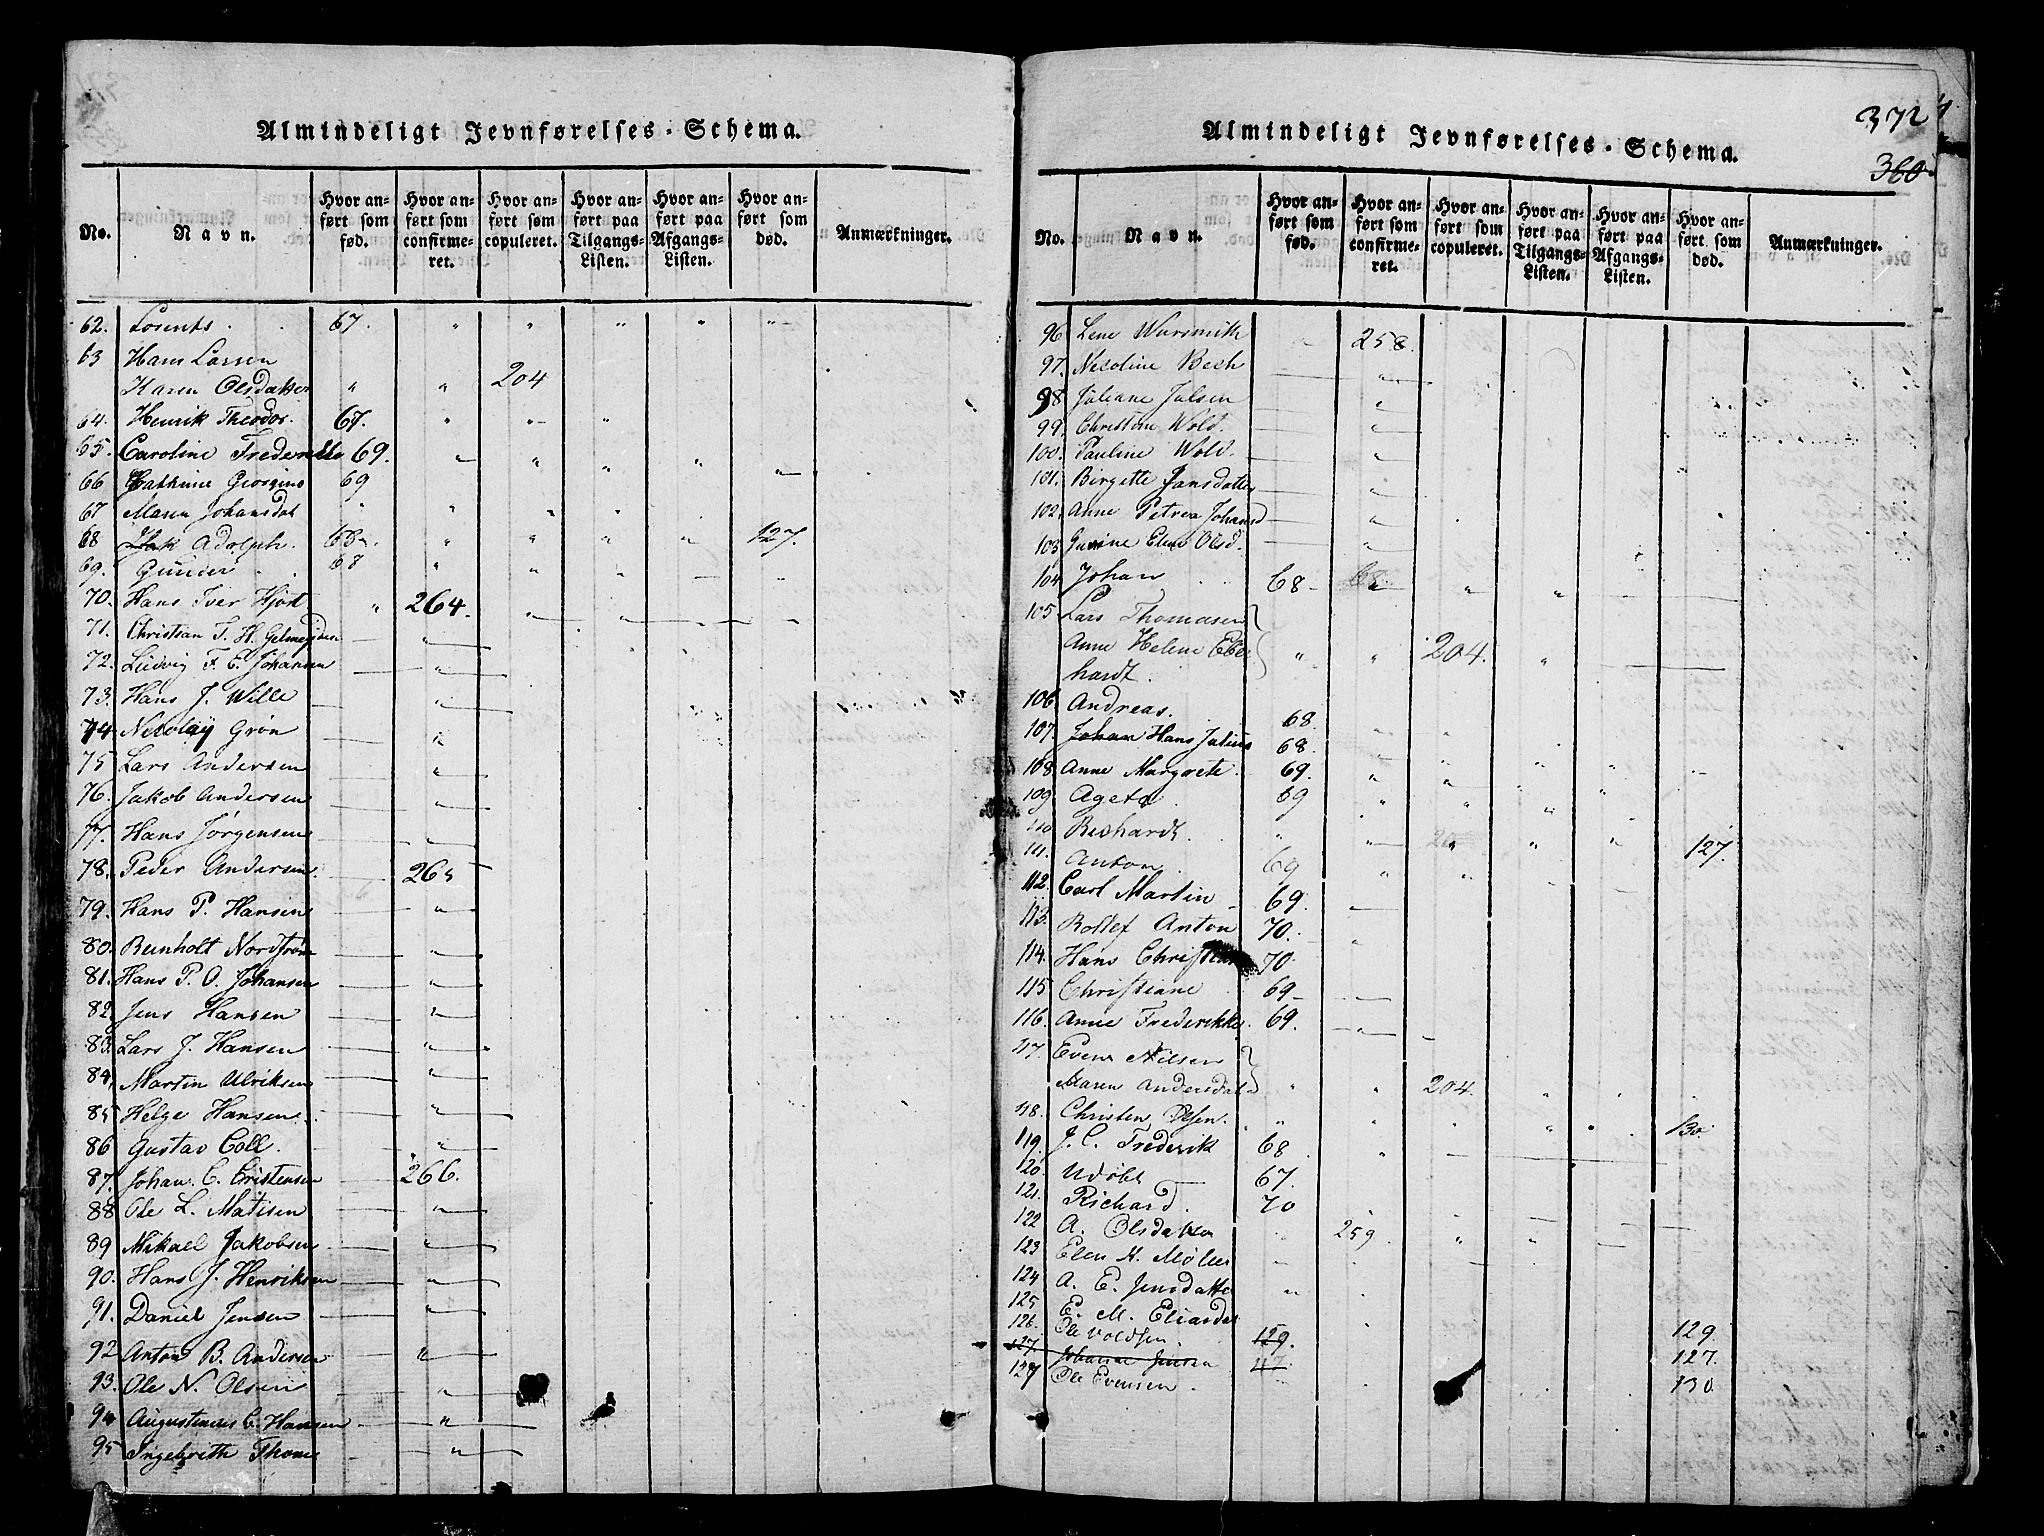 Almindeligt Jevnførelses-Schema.
No. Navn. Hvor anført som fød. Hvor anført som confirmeret. Hvor anført som copuleret. Hvor anført paa Tilgangs-Listen. Hvor anført paa Afgangs-Listen. Hvor anført som død. Anmærkninger.
62. Lorents. 67. " " " " "
63 Hans Larsen
Karen Olsdatter " " 204
64. Henrik Theodor. 67. " " "
65. Caroline 69. " " " "
66 Cathrine Georgine 69 " " " " "
67 Maren Johansdat " " " "
68 Adolph. " " " " 127.
69. Gunder 68 " " "
70. Hans Iver Hjort " 264.
71. Christian F. H. "
72. Ludvig F. E. Johansen "
73. Hans J. Wille "
74. Nicolay Grøn "
75 Lars Andersen "
76. Jakob Andersen "
77. Hans Jørgensen "
78. Peder Andersen. 265
79. Hans P. Hansen "
80. Reinholt Nordstrøm "
81. Hans P. O. Johansen "
82. Jens Hansen "
83. Lars J. Hansen "
84. Martin Ulriksen "
85 Helge Hansen "
86 Gustav Coll. "
87. Johan C. Cristensen 266.
88 Ole L. Matisen "
89 Mikael Jakobsen "
90. Hans J. Henriksen "
91. Daniel Jensen "
92 Anton B. Andersen "
93. Ole N. Olsen "
94 Augustinus C. Hansen "
95 Ingebrith Thom "
372
360
Almindeligt Jevnførelses-Schema.
No. Navn. Hvor anført som fød. Hvor anført som confirmeret. Hvor anført som copuleret. Hvor anført paa Tilgangs-Listen. Hvor anført paa Afgangs-Listen. Hvor anført som død. Anmærkninger.
96 Lene Wursmith 258.
97. Nicoline Bech "
98 Juliane Julsen "
99. Christine Wold. "
100. Pauline Wold. "
101. Birgitte Jansdatter "
102. Anne Petrea Johansd "
103 Elen Olsd. "
104 Johan 68 " " "
105 Lars Thomasen
Anne Helene Eber
hardt. " " 204. "
106 Andreas. 68
107. Johan Hans Julius 68.
108. Anne Margrete. 69. " " "
109. Ageta. 69 " " " "
110 Richardt. " " " " 127.
111. Anton 69 " "
112. Carl Martin 69.
113. Rollef Anton 70. "
114. Hans Christian 70.
115 Christiane 69
116. Anne Frederikke. 69. "
117. Even Nilsen
Maren Andersdat " " 204. " "
118. Christen Olsen. " " " " 130.
119. J. C. Frederik 68 "
120 67.
121. Richard. 70
122 A. Olsdatter 259. " "
123 Elen K. Møller "
124 A. E. Jensdatter "
125 E. M. Eliasdat
126. Ole Voldsen. 129. 129.
127. Johanne Jensen 127. 127.
127 Ole Evensen. 130